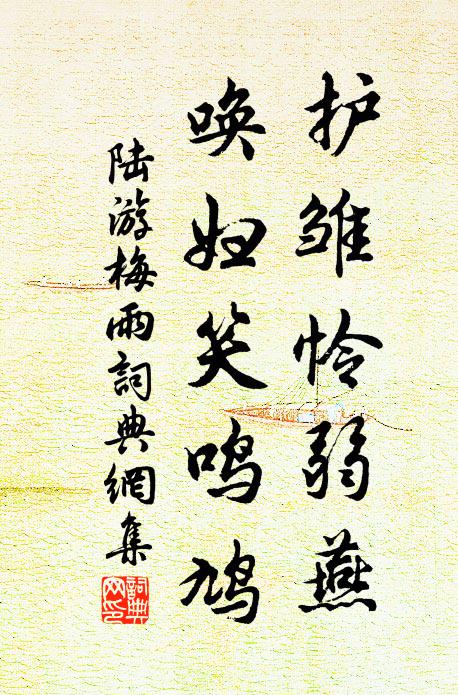 护雏怜弱燕
唤妇笑鸣鸠
陆游梅雨詞典網集
詞典
网印